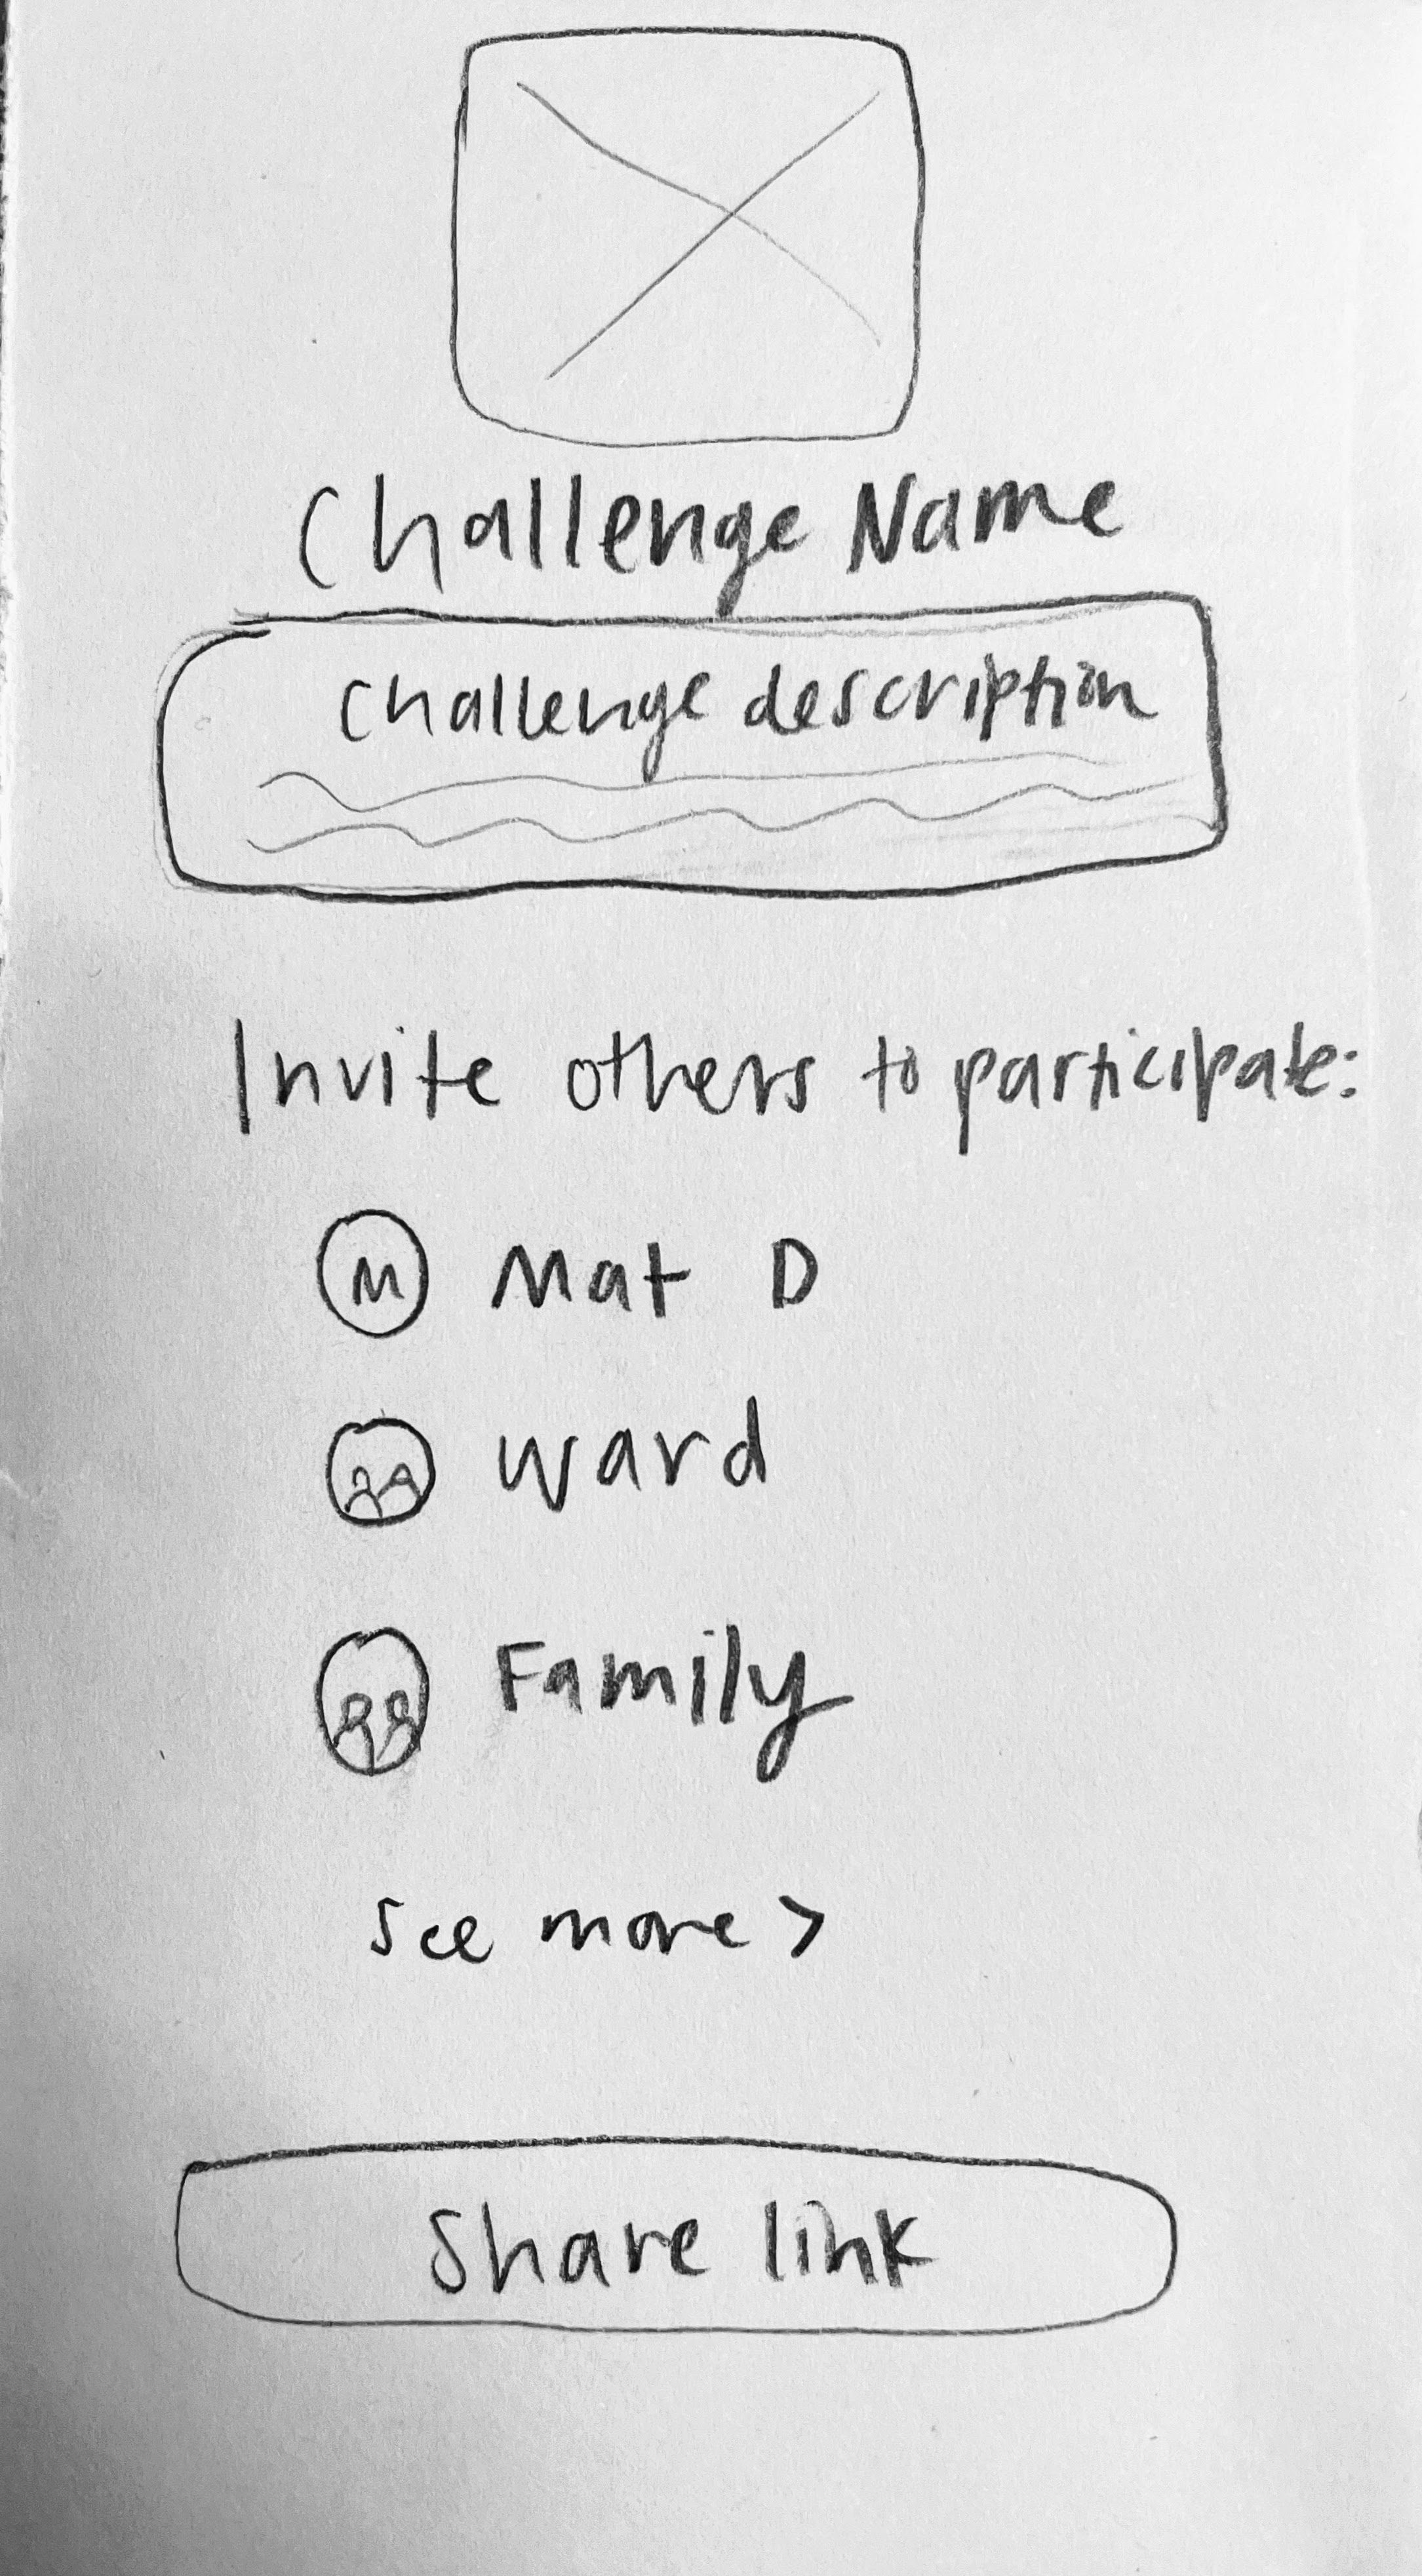 Challenge Name
Challenge description
Invite others to participate:
M Mat D
Ward
Family
See more >
Share link